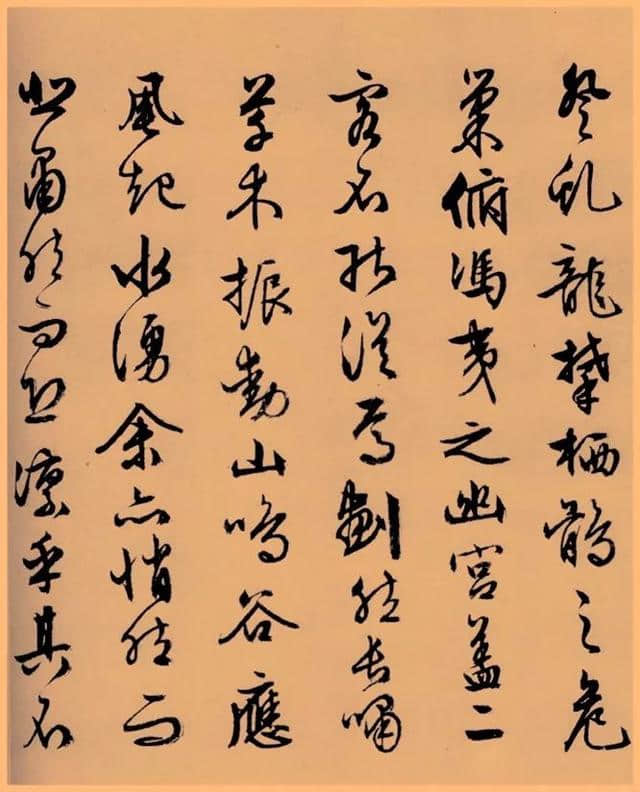 登虬龍攀栖鶻之危
巢俯馮夷之幽宮蓋二
客不能從焉劃然長嘯
草木振動山鳴谷應
風起水湧余亦悄然而
悲肅然而恐凜乎其不